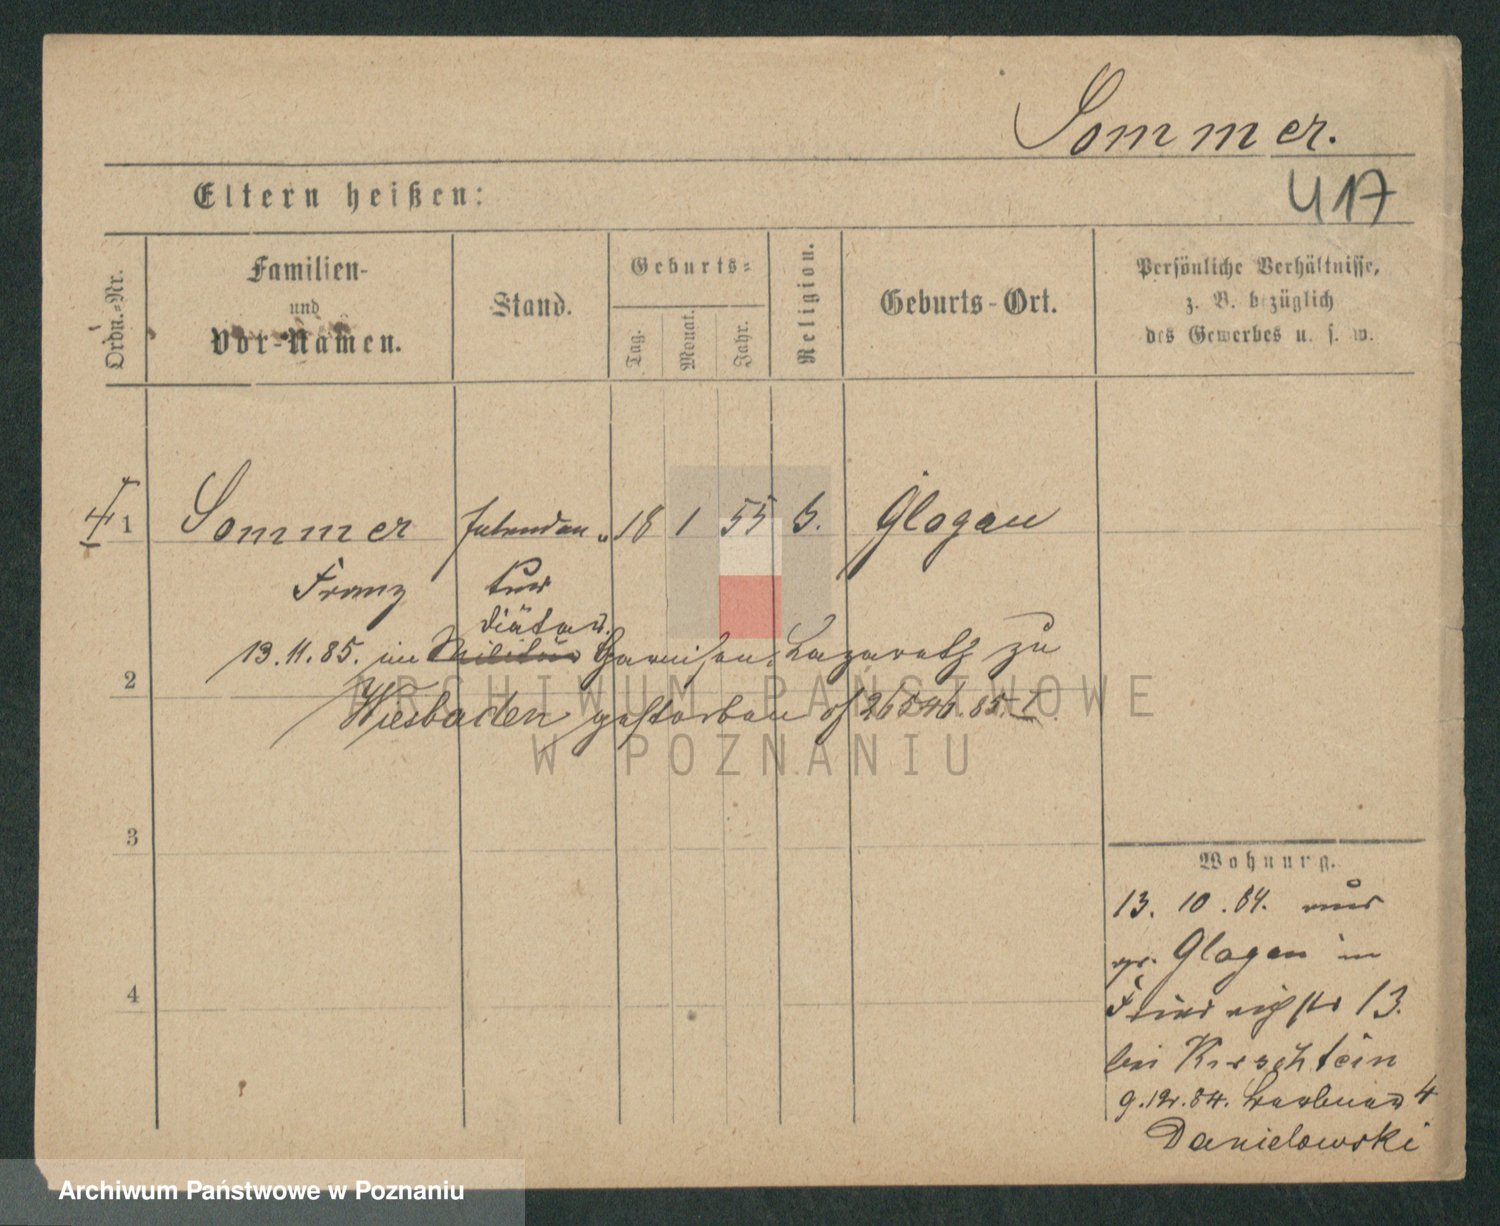 Sommer.
417
Eltern heißen:
Ordn.-Nr.
Familien-
und
Vor-Namen.
Stand.
Geburts-
Tag.
Monat.
Jahr.
Religion.
Geburts-Ort.
Persönliche Verhältnisse,
z. B. bezüglich
des Gewerbes u. s. w.
1 Sommer Intendan- 18 1 55 Glogau
Franz tur
Diätar.
13.11.85. im Militär Garnison Lazareth zu
2
Wiesbaden gestorben
ARCHIWUM PAŃSTWOWE
W POZNANIU
3
4
Wohnung.
13. 10. 84. aus
Glogau in
Friedrichstr 13.
bei Kirschtein
9.12.84. 4
Danielowski
Archiwum Państwowe w Poznaniu